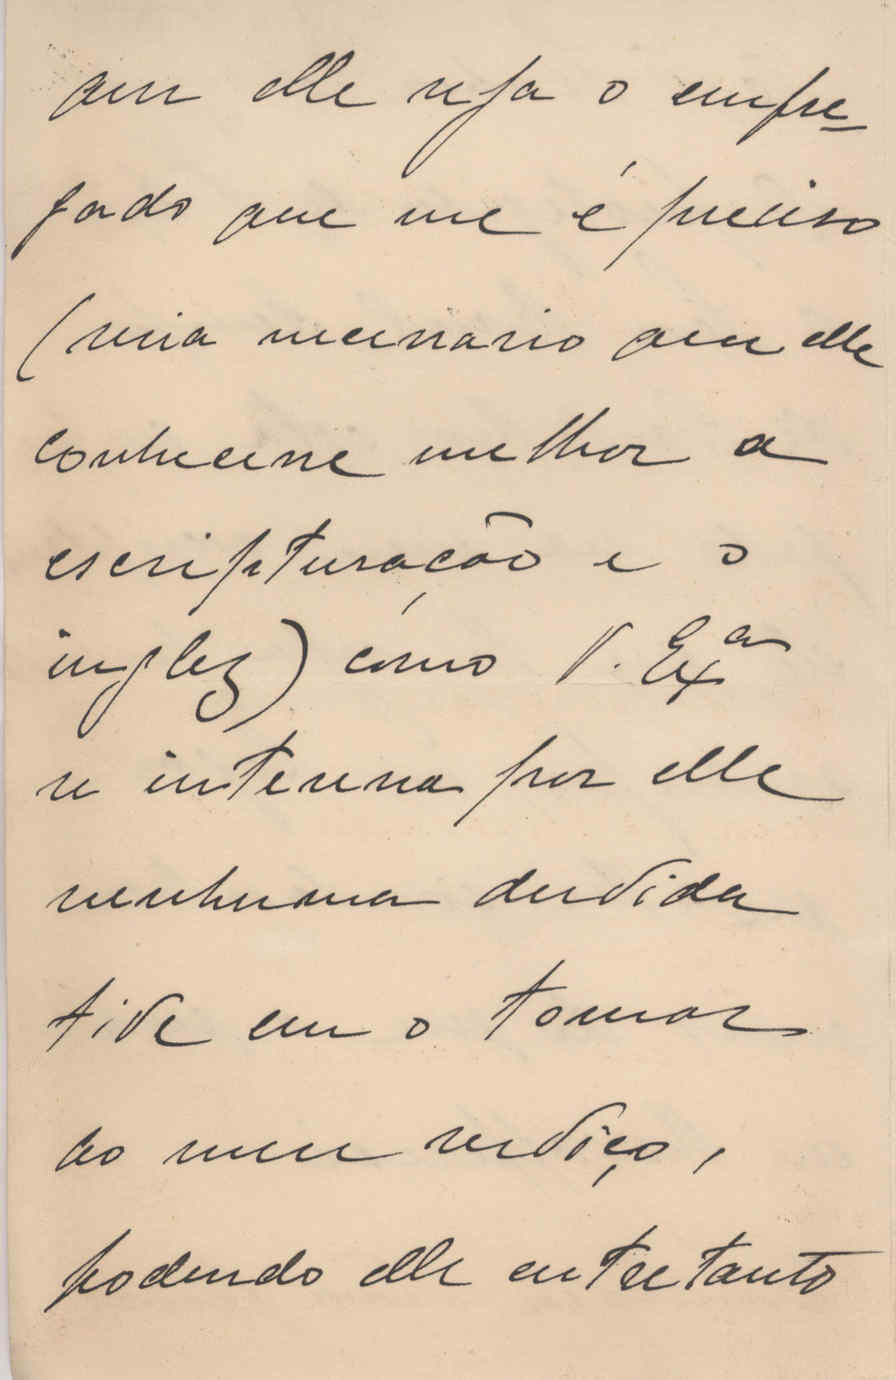 que elle seja o empre-
gado que me é preciso
(seria necessario que elle
conhecesse melhor a
escripturação e o
inglez) como V. Exª
se interessa por elle
nenhuma duvida
tive em o tomar
ao meu serviço,
podendo elle entretanto